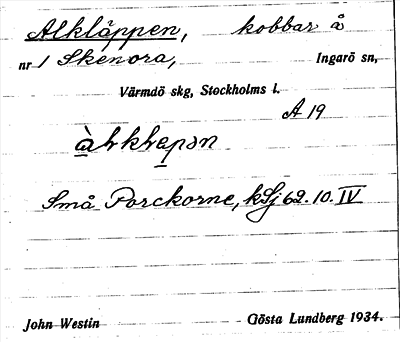 Alkläppen, kobbar å
nr 1 Skenora, Ingarö sn,
Värmdö skg, Stockholms l.
A 19
Små Porckorne, kSj 62.10.IV
John Westin Gösta Lundberg 1934.